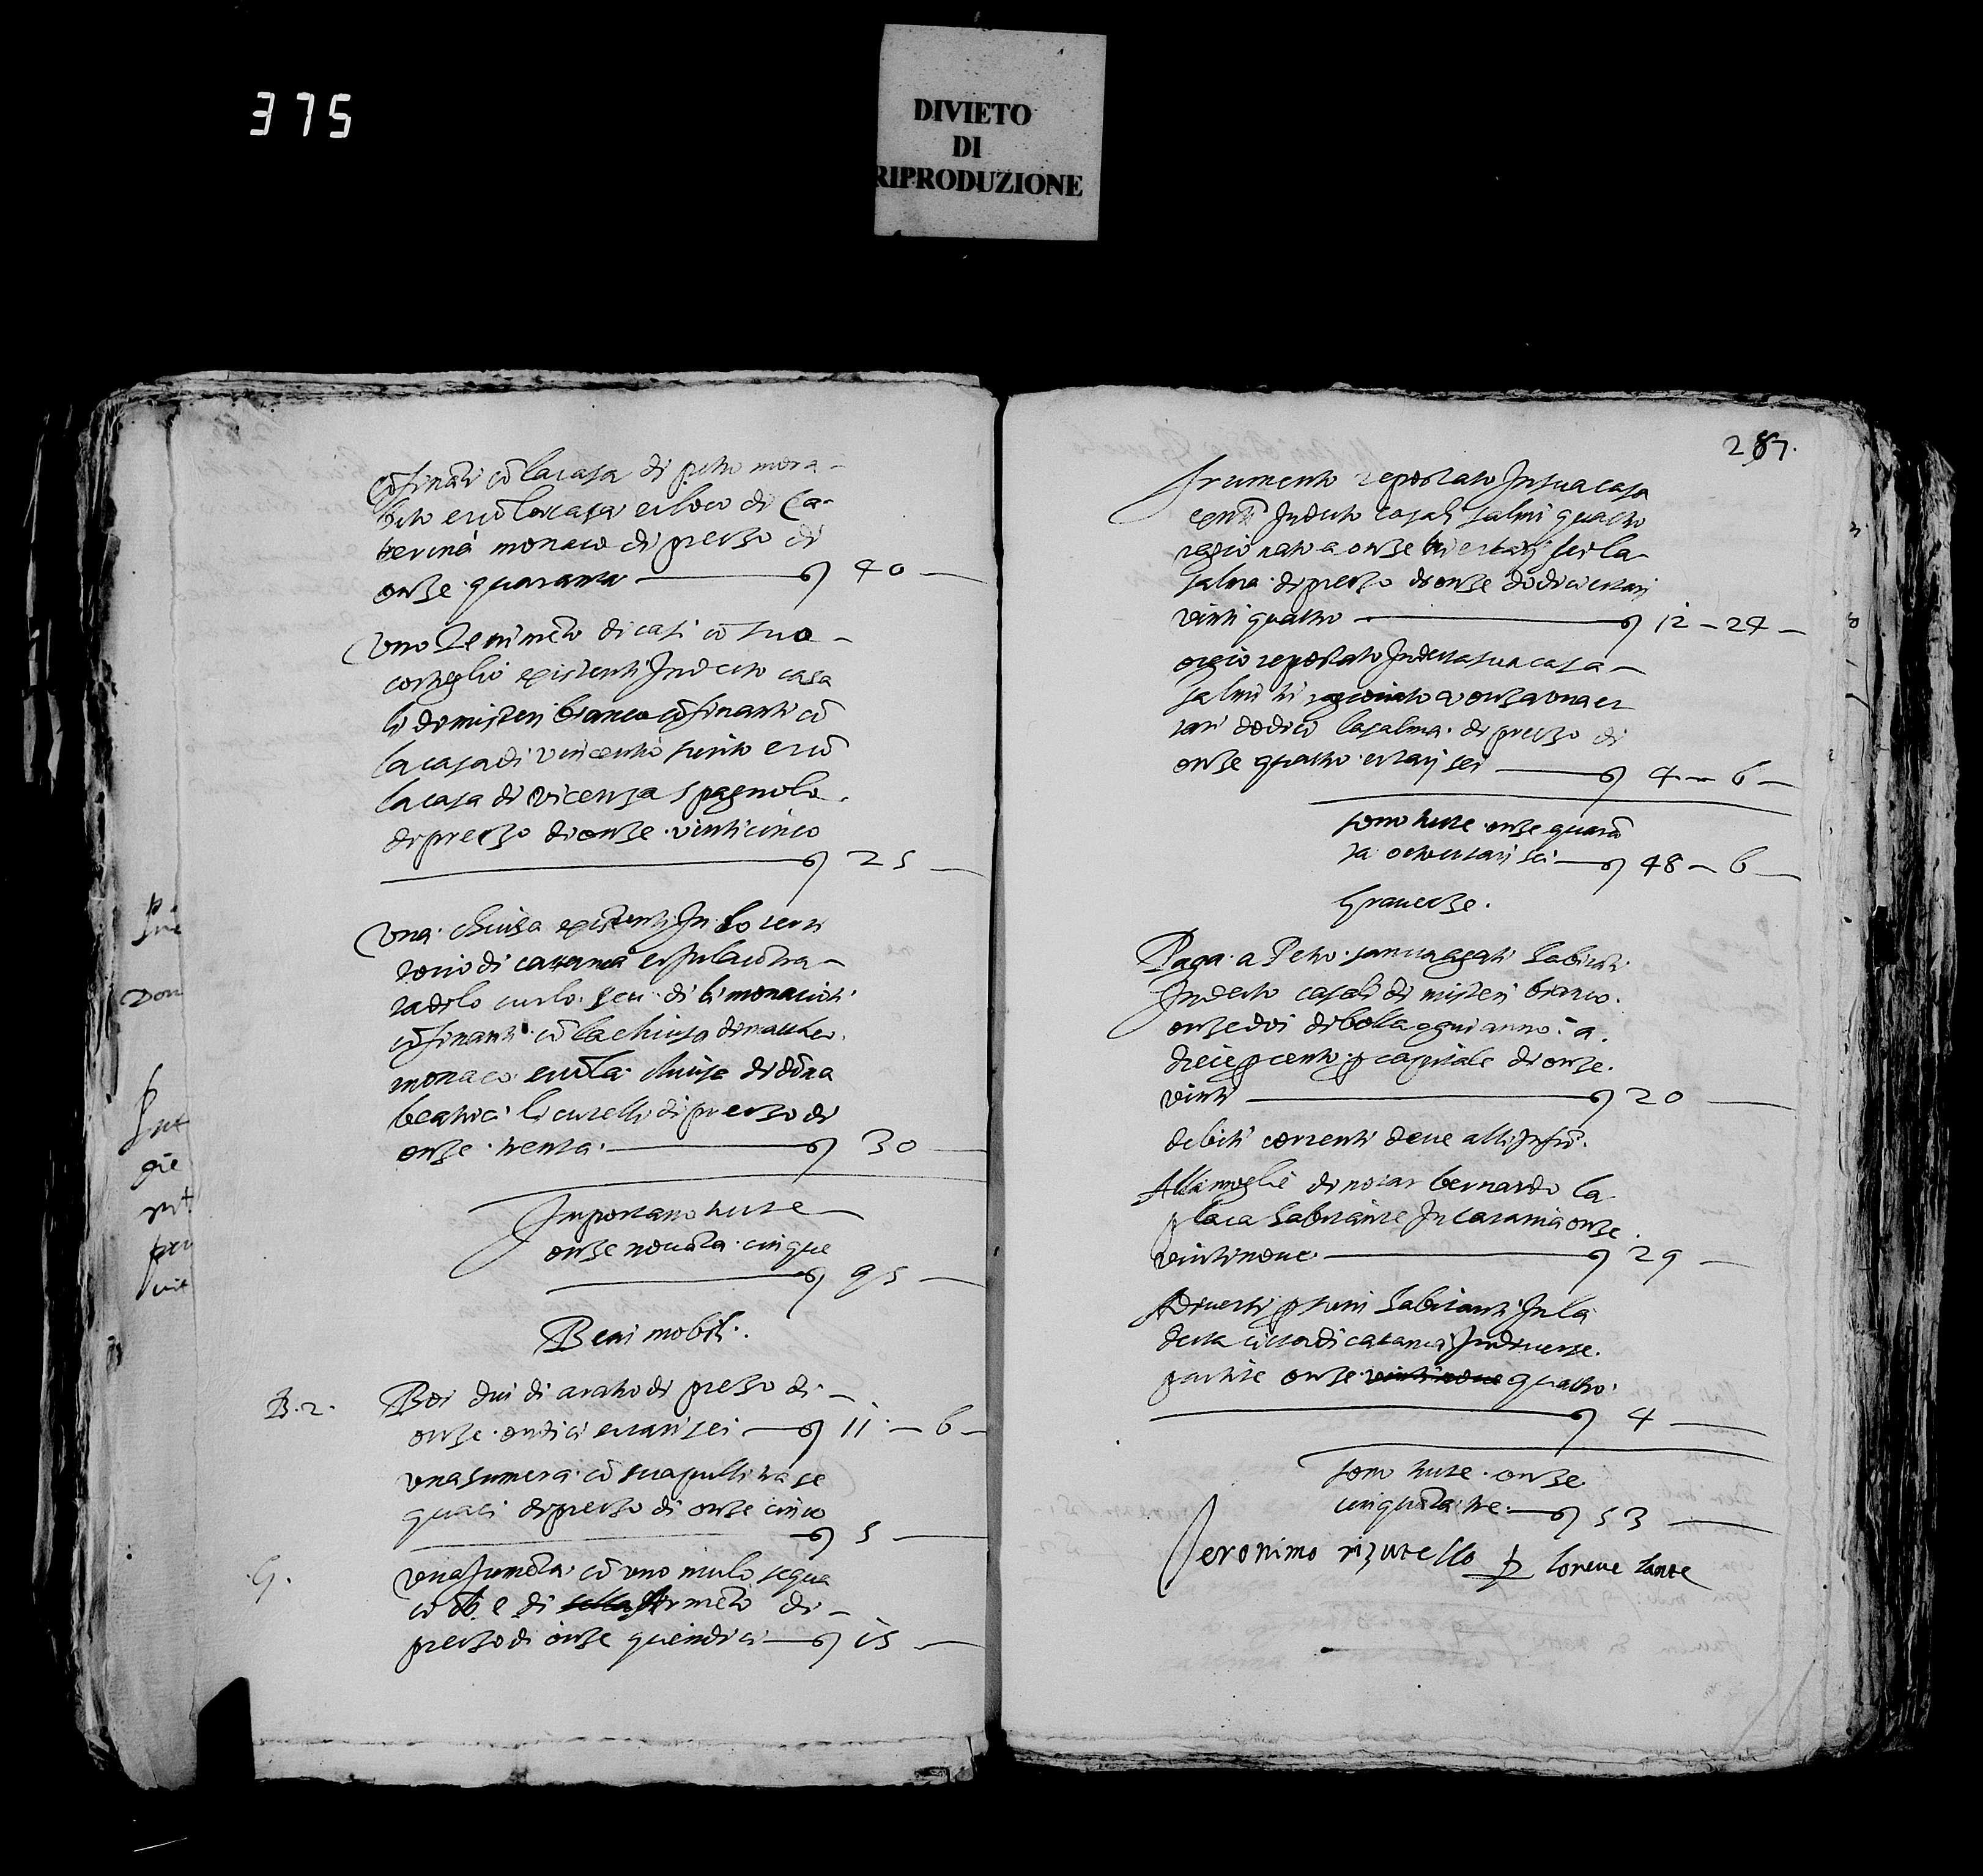 375
DIVIETO
DI
RIPRODUZIONE
cõfinãti cõ la casa di petro mora-
bito et cũ la casa et loco di Ca-
terina monaco di prezzo di
onze quaranta ——— 40 —
Uno tenimẽto di casi cõ suo
cortiglio existenti In decto casa
li di misteri bianco cõfinanti cõ
la casa di vincentio et cũ
la casa di vicenza spagnolo
di prezzo di onze vinti cinco
——— 25 —
Una chiusa existenti In lo terri
torio di catania et In la cõtra-
ta di lo seu di li monachi
cõfinanti cõ la chiusa di
monaco et cũ la chiusa di dõna
beatrici di prezzo di
onze trenta ——— 30 —
Importano tutte
onze novãta cinque
——— 95 —
Beni mobili.
B. 2. Boi dui di aratro di prezzo di
onze undici et tari sei — 11 — 6 —
una sumera cõ sua pulli tra se
guaci di prezzo di onze cinco
——— 5 —
G. una Jumẽta cõ uno mulo sequa
di
prezzo di onze quindici — 15 —
287.
frumento repostato In sua casa
In decto casali salmi quattro
ragionato a onze tri et tarj sei la
salma di prezzo di onze dodici et tari
vinti quattro ——— 12 — 24 —
orgio repostato In decta sua casa
salmi tri ragionato a onza una et
tari dodici la salma di prezzo di
onze quattro et tarj sei ——— 4 — 6 —
sono tutte onze quarã
ta octo et tari sei — 48 — 6 —
Graveze.
Paga a Petro habitãti
In decto casali di misteri bianco
onze doi di bolla ogni anno a
dieci per cento per capitale di onze
vinti ——— 20 —
debiti correnti deve alli Infrĩ.
Alla moglie di notar bernardo la
placa habitante In catania onze
vintinove ——— 29 —
A diversi habitanti In la
decta citta di catania In diverse
partite onze vintinove quattro
——— 4 —
sono tutte onze
cinquãta tre — 53 —
Jeronimo rizutello